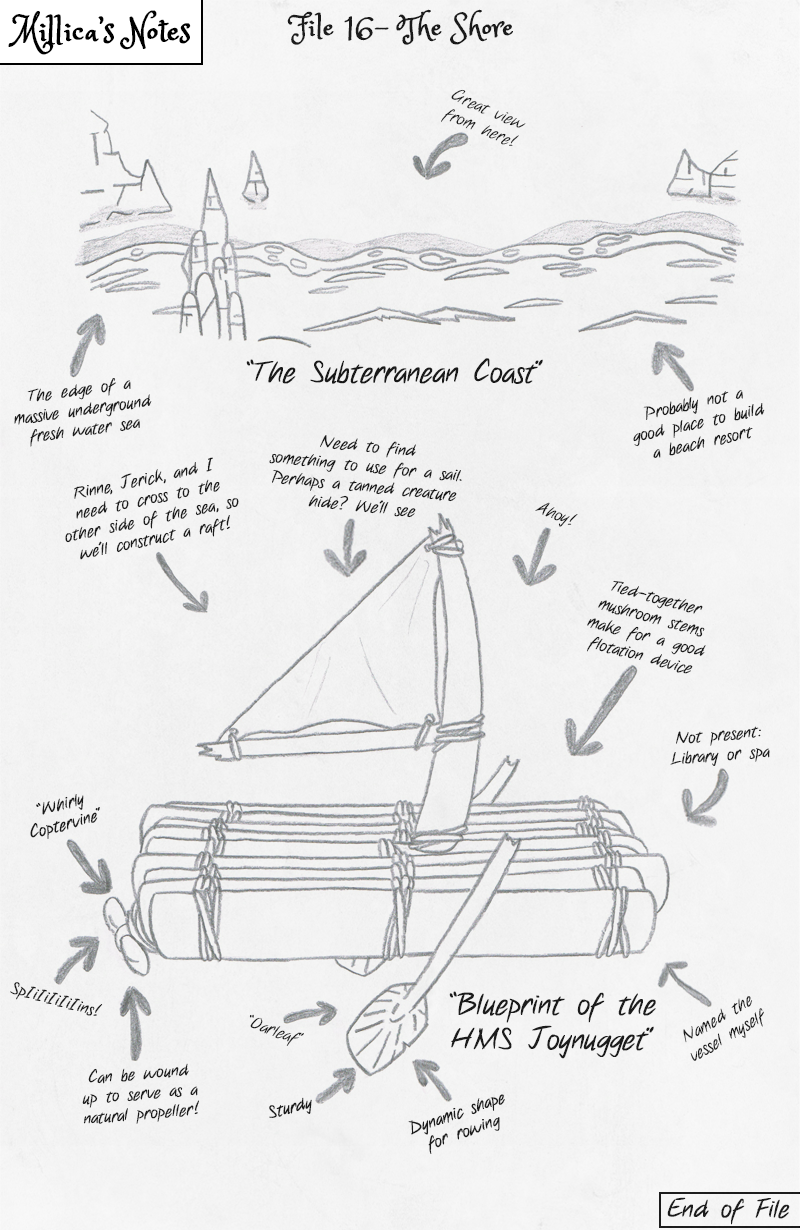 Millica's Notes
File 16- The Shore
Great view
from here!
"The Subterranean Coast"
The edge of a
massive underground
fresh water sea
Probably not a
good place to build
a beach resort
Rinne, Jerick, and I
need to cross to the
other side of the sea, so
we'll construct a raft!
Need to find
something to use for a sail.
Perhaps a tanned creature
hide? We'll see
Ahoy!
Tied-together
mushroom stems
make for a good
flotation device
Not present:
Library or spa
"Whirly
Coptervine"
SpIiIiIiIiIins!
Can be wound
up to serve as a
natural propeller!
"Oarleaf"
Sturdy
Dynamic shape
for rowing
"Blueprint of the
HMS Joynugget"
Named the
vessel myself
End of File